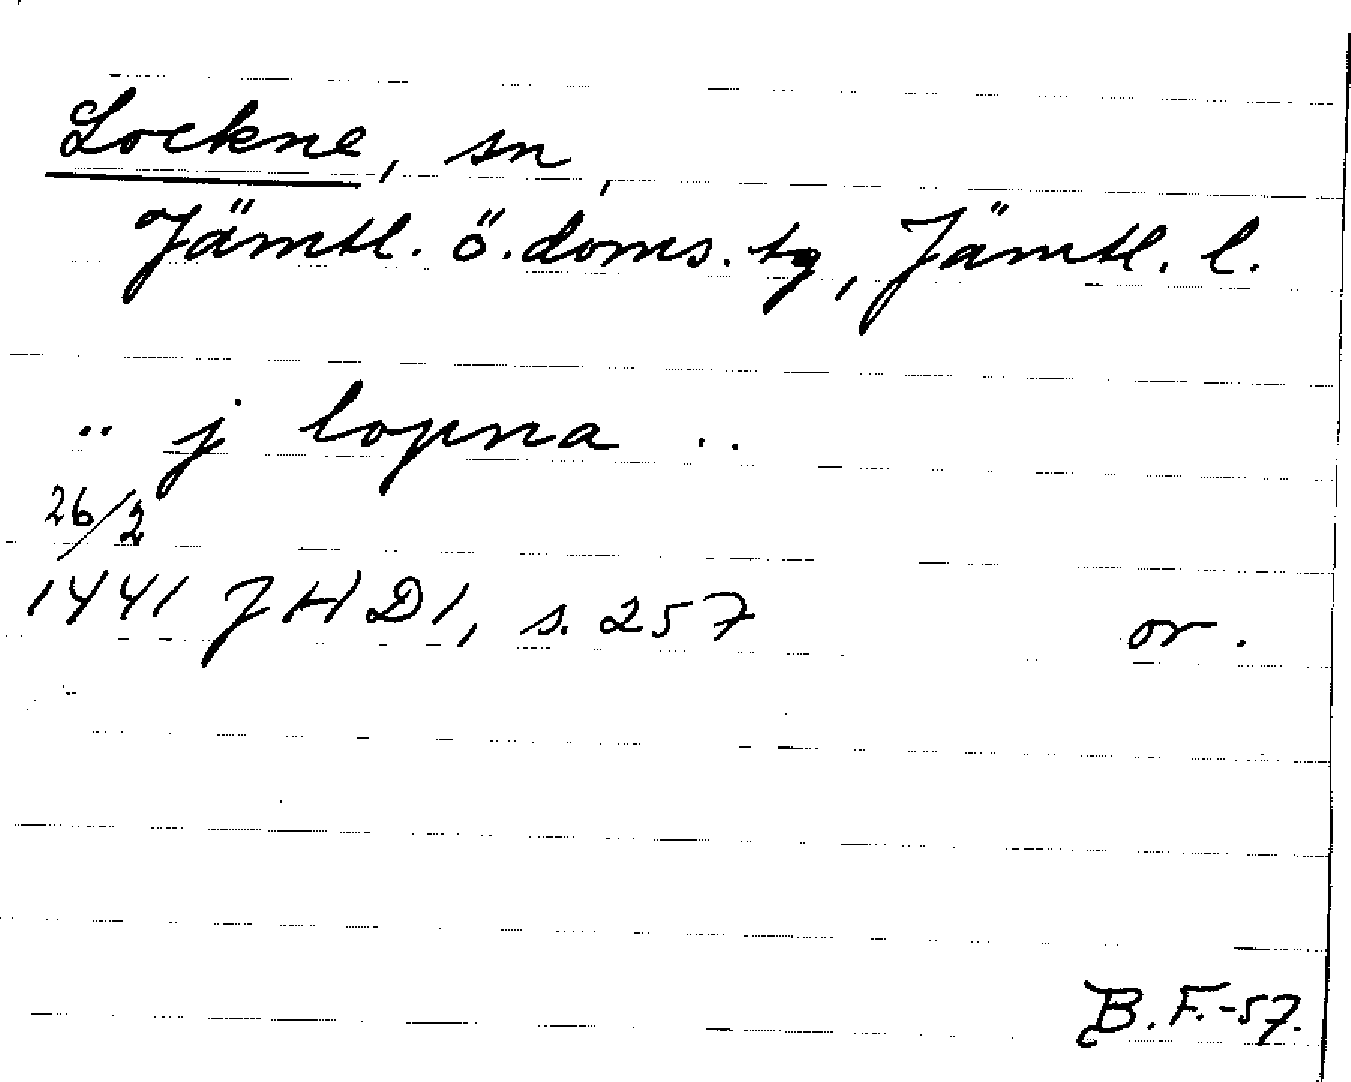 Lockne, sn,
Jämtl. ö. doms. tg, Jämtl. l.
.. j lopna ..
26/2
1441 JHD1, s. 257 or.
B.F.-57.